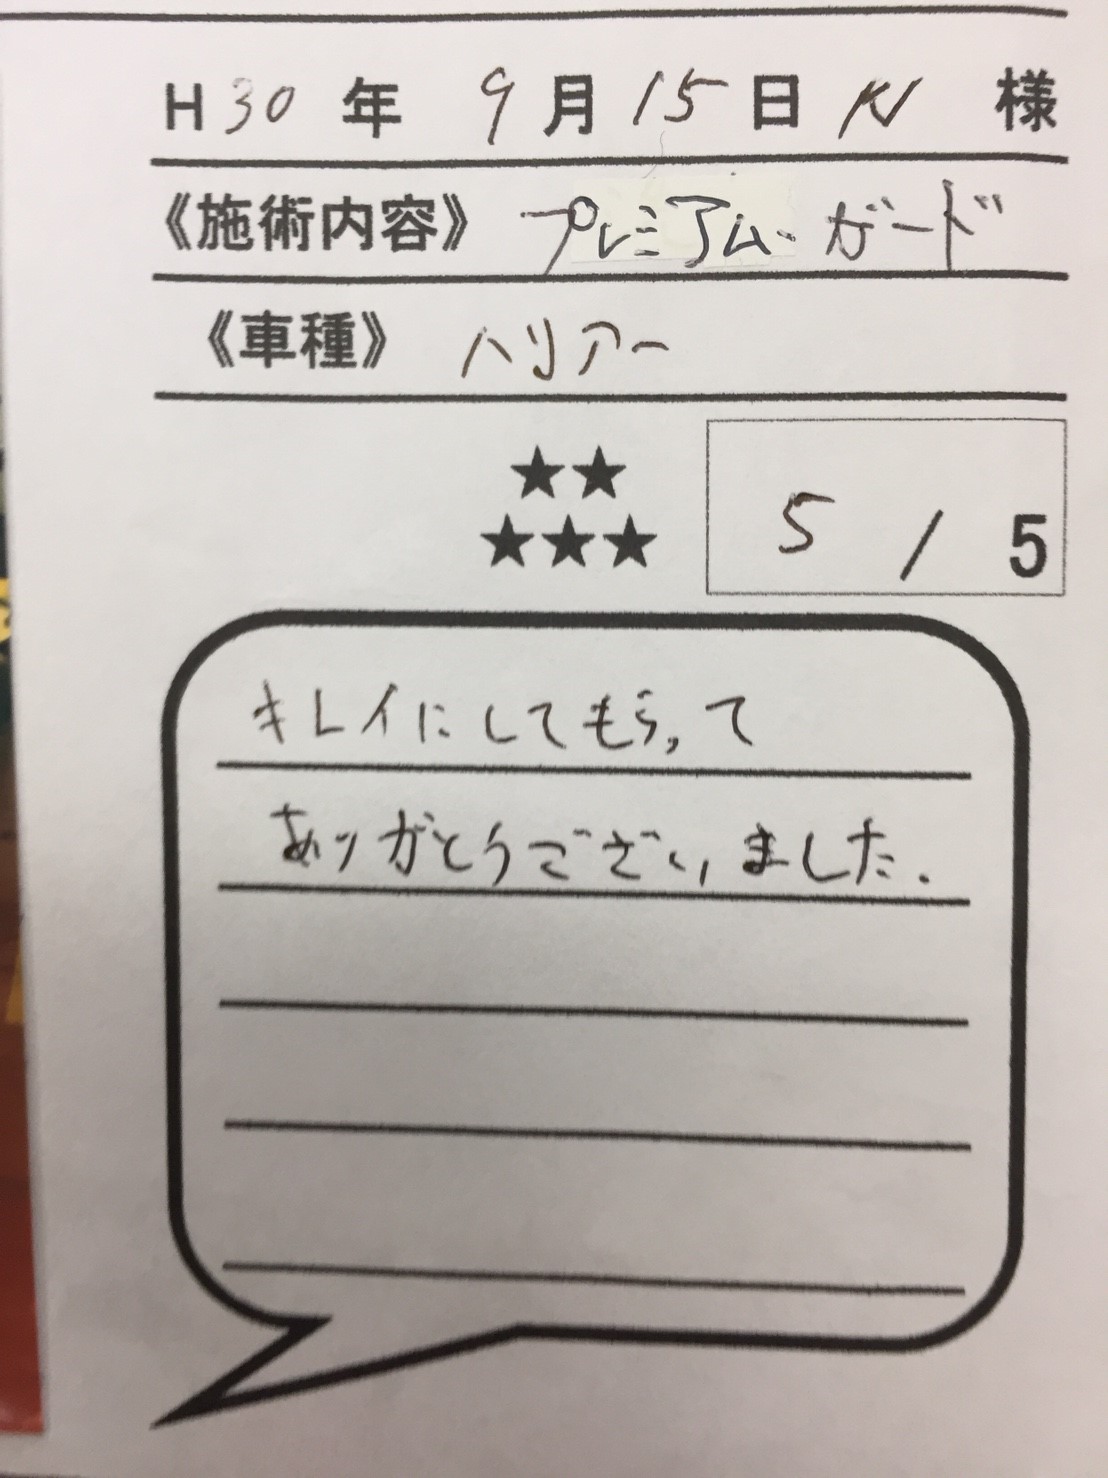 H30年 9月15日 N 様
《施術内容》 プレミアムガード
《車種》 ハリアー
★★
★★★ 5/5
キレイにしてもらって
ありがとうございました.